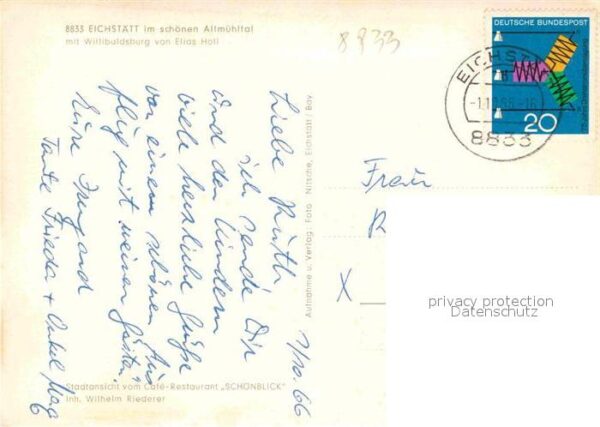 8833 EICHSTÄTT im schönen Altmühltal
mit Willibaldsburg von Elias Holl
8833
DEUTSCHE BUNDESPOST
20
EICHSTÄTT
-1.10.66-16
8833
1/10.66
Liebe Ruth
ich sende Dir
und den Kindern
viele herzliche Grüße
von einem schönen Aus
flug mit meinen Gästen.
Eure Irmgard
Tante Frieda + Onkel
Aufnahme u. Verlag: Foto Nitsche, Eichstätt / Bay
Frau
R
X
privacy protection
Datenschutz
Stadtansicht vom Café-Restaurant „SCHÖNBLICK"
Inh. Wilhelm Riederer